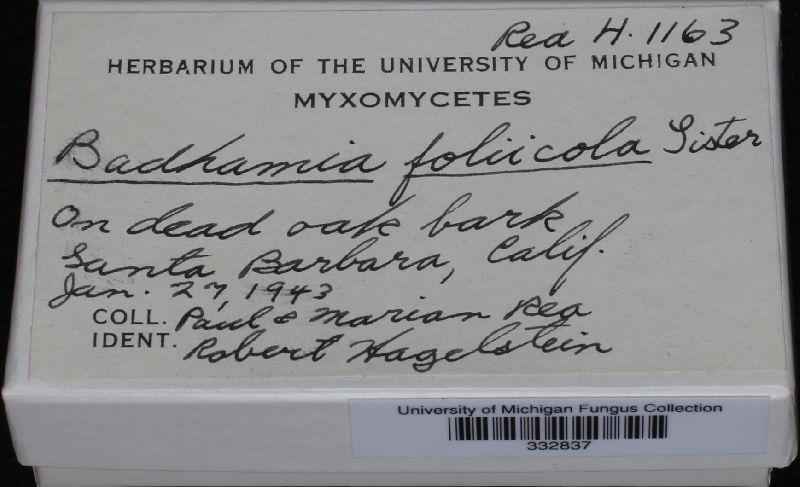 Rea H. 1163
HERBARIUM OF THE UNIVERSITY OF MICHIGAN
MYXOMYCETES
Badhamia foliicola Lister
On dead oak bark
Santa Barbara, Calif.
Jan. 27, 1943
COLL. Paul & Marian Rea
IDENT. Robert Hagelstein
University of Michigan Fungus Collection
332837